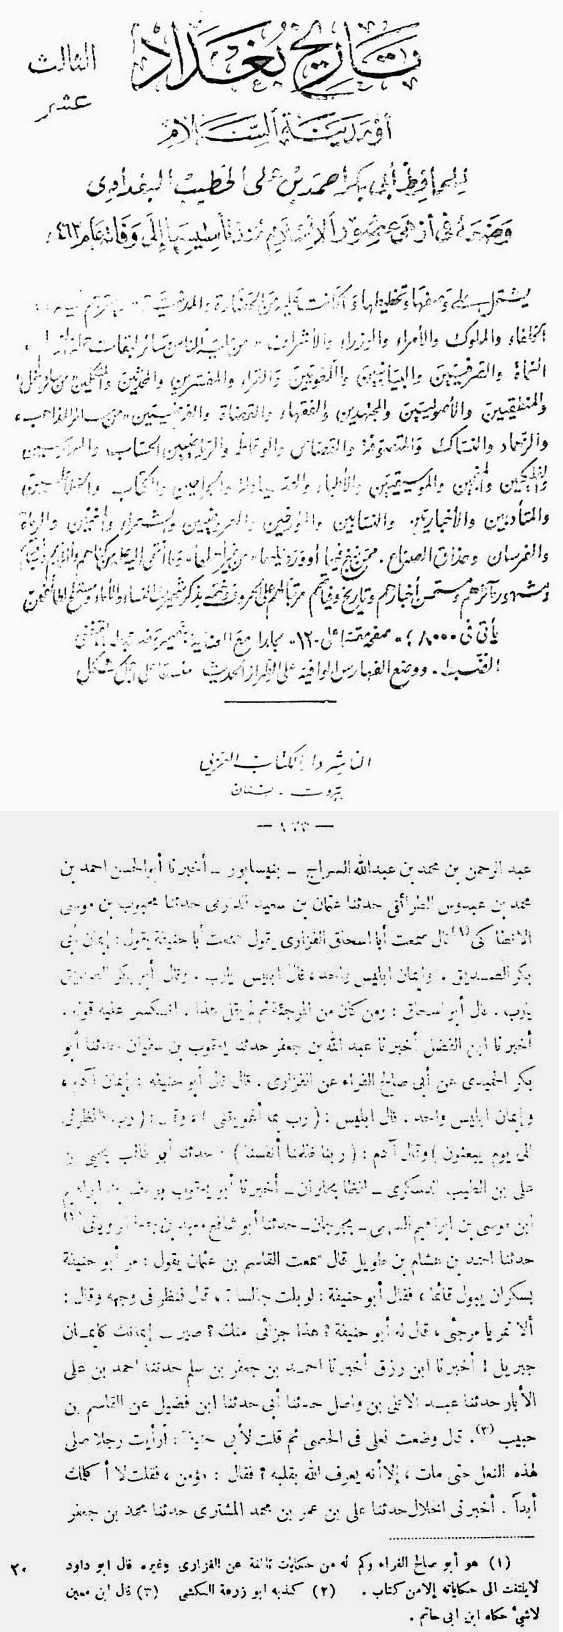 تاريخ بغداد
الثالث
عشر
أو مدينة السلام
للحافظ أبي بكر أحمد بن علي الخطيب البغدادي
وضعه في أزهى عصور الإسلام منذ تأسيسها إلى وفاته عام ٤٦٣
يشتمل على وصفها وتخطيطها وما كانت عليه من الحضارة والمدنية
الخلفاء والملوك والأمراء والوزراء والأشراف
النحاة والصرفيين والبيانيين واللغويين والقراء والمفسرين والمحدثين والمتكلمين
والمنطقيين والأصوليين والمجتهدين والفقهاء والقضاة والفرضيين من سائر المذاهب
والزهاد والنساك والمتصوفة والقصاص والوعاظ والرياضيين الحساب والمهندسين
والفلكيين والمنجمين والموسيقيين والأطباء والصيادلة والجراحين والكتاب والخطاطين
والمتأدبين والأخباريين والنسابين والمؤرخين والعروضيين والشعراء والمغنين والرماة
والفرسان وحذاق الصناع
ومشهور مآثرهم ومستحسن أخبارهم وتاريخ وفياتهم
يأتي في ٨٠٠٠
الضبط . ووضع الفهارس الوافية على الطراز الحديث
الناشر دار الكتاب العربي
بيروت - لبنان
عبد الرحمن بن محمد بن عبدالله السراج - بنيسابور - أخبرنا أبو الحسن احمد بن
محمد بن عبدوس الطرائفي حدثنا عثمان بن سعيد الدارمي حدثنا محبوب بن موسى
الانطاكي (١) قال سمعت أبا اسحاق الفزاري يقول سمعت أبا حنيفة يقول : إيمان أبي
بكر الصديق ، وإيمان ابليس واحد ، قال ابليس يارب ، وقال أبو بكر الصديق
يارب . قال أبو اسحاق : ومن كان من المرجئة ثم لم يقل هذا ، انكسر عليه قوله .
أخبرنا ابن الفضل أخبرنا عبد الله بن جعفر حدثنا يعقوب بن سفيان حدثنا أبو
بكر الحميدي عن أبي صالح الفراء عن الفزاري . قال قال أبو حنيفة : إيمان آدم ،
وإيمان ابليس واحد . قال ابليس : ( رب بما أغويتني ) وقال : ( رب فانظرني
الى يوم يبعثون ) وقال آدم : ( ربنا ظلمنا أنفسنا ) . حدثنا أبو طالب يحيى بن
علي بن الطيب الدسكري - لفظا بحلوان - أخبرنا أبو يعقوب يوسف بن ابراهيم
ابن موسى بن ابراهيم السهمي - بجرجان - حدثنا أبو شافع معبد بن جمعة الروياني (٢)
حدثنا احمد بن هشام بن طويل قال سمعت القاسم بن عثمان يقول : مر أبو حنيفة
بسكران يبول قائما ، فقال أبو حنيفة : لو بلت جالسا ؟ ، قال فنظر في وجهه وقال :
ألا تمر يا مرجئ ، قال له أبو حنيفة ؟ هذا جزائي منك ؟ صيرت إيمانك كايمان
جبريل ! أخبرنا ابن رزق أخبرنا احمد بن جعفر بن سلم حدثنا احمد بن علي
الأبار حدثنا عبد الاعلى بن واصل حدثنا أبي حدثنا ابن فضيل عن القاسم بن
حبيب (٣) . قال وضعت نعلي في الحصى ثم قلت لأبي حنيفة : أرأيت رجلا صلى
لهذه النعل حتى مات ، إلا أنه يعرف الله بقلبه ؟ فقال : مؤمن ، فقلت لا أكلمك
أبدا . أخبرني الخلال حدثنا علي بن عمر بن محمد المشترى حدثنا محمد بن جعفر
(١) هو أبو صالح الفراء وكم له من حكايات تالفة عن الفزاري وغيره قال ابو داود ٢٠
لا يلتفت الى حكاياته إلا من كتاب . (٢) كذبه ابو زرعة الكشي (٣) قال ابن معين
لا شيء حكاه ابن ابي حاتم .